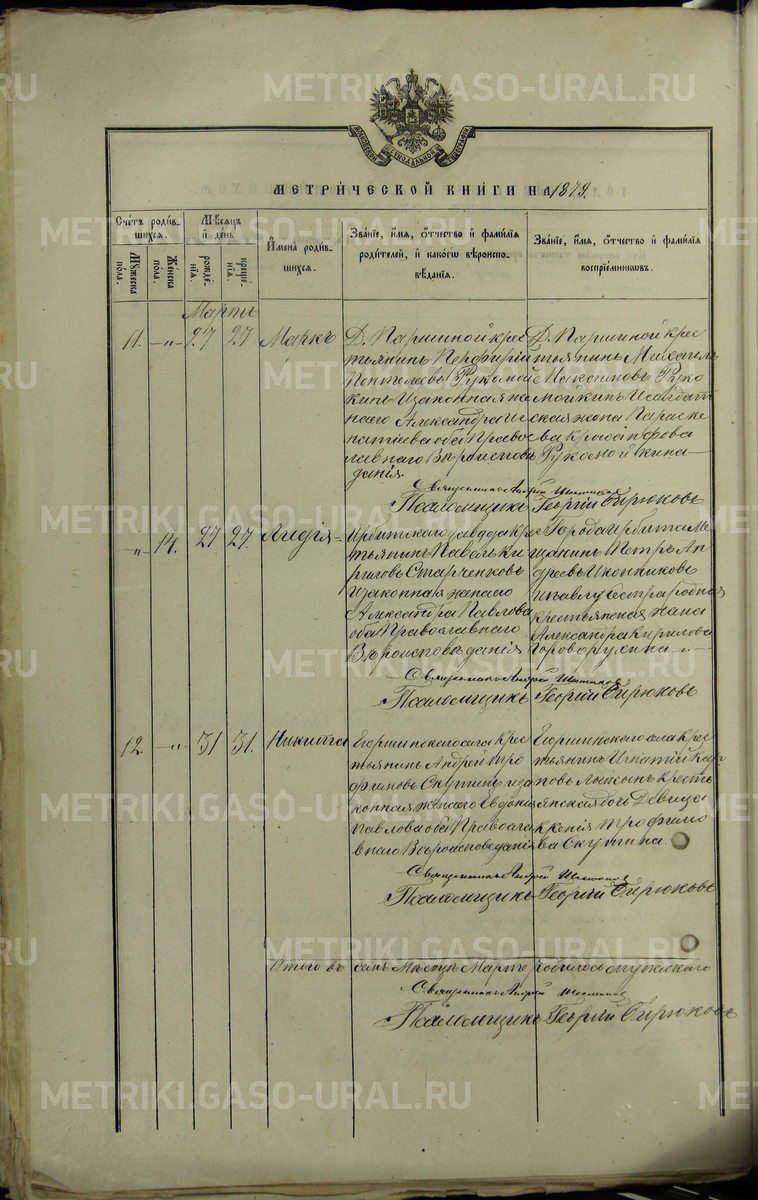 МЕТРИЧЕСКОЙ КНИГИ НА 1879.
Счетъ родившихся.
Мужеска пола.
Женска пола.
Мѣсяцъ и день
рожденія.
крещенія.
Имена родившихся.
Званіе, имя, отчество и фамилія родителей, и какого вѣроисповѣданія.
Званіе, имя, отчество и фамилія воспріемниковъ.
Мартъ
11. -„- 27 27 Маркъ
Д. Паршиной крес
тьянинъ Перфирій
Пантелеевъ Рукомой
кинъ и законная же
на его Александра Иг
натіева оба Право
славнаго Вѣроиспове
данія.
Д. Паршиной крес
тьянинъ Михаилъ
Максимовъ Руко
мойкинъ и солдат
ская жена Параске
ва
Рукомойкина
Священникъ Андрей
Псаломщикъ Георгій Бирюковъ
-„- 14. 27 27. Лидія
Ирбитскаго завода крес
тьянинъ Павелъ Ки
риловъ Старченковъ
и законная жена его
Александра Павлова
оба Православнаго
Вѣроисповѣданія
Города Ирбита Ме
щанинъ Петръ Ан
дреевъ Иконниковъ
и Павлу сестра родная
крестьянская жена
Александра Кирилова
Говорухина -„-
Священникъ Андрей
Псаломщикъ Георгій Бирюковъ
12. -„- 31 31. Никита
Егоршинскаго села крес
тьянинъ Андрей Тро
фимовъ Скутинъ и за
конная жена его Евдокія
Павлова оба Правосла
внаго Вѣроисповеданія
Егоршинскаго села крес
тьянинъ Игнатій Кар
повъ крестъ
янская дочь Девица
Ксенія Трофимо
ва Скутина.
Священникъ Андрей
Псаломщикъ Георгій Бирюковъ
Итого въ семъ Мѣсяцѣ Мартѣ родилось мужескаго
Священникъ Андрей
Псаломщикъ Георгій Бирюковъ
METRIKI.GASO-URAL.RU